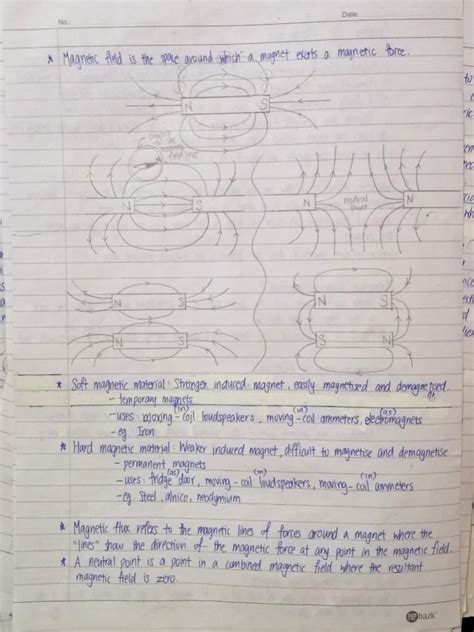 No.
Date:
* Magnetic field is the space around which a magnet exerts a magnetic force.
N S
field lines
N S
N neutral point N
N S
N S
N S
N S
* Soft magnetic material: Stronger induced magnet, easily magnetised and demagnetised.
- temporary magnets
- uses: moving-coil (in) loudspeakers, moving-coil (in) ammeters, electromagnets (as)
- eg. Iron
* Hard magnetic material: Weaker induced magnet, difficult to magnetise and demagnetise
- permanent magnets
- uses: fridge (as) door, moving-coil (in) loudspeakers, moving-coil (in) ammeters
- eg. Steel, alnico, neodymium
* Magnetic flux refers to the magnetic lines of forces around a magnet where the
"lines" show the direction of the magnetic force at any point in the magnetic field.
* A neutral point is a point in a combined magnetic field where the resultant
magnetic field is zero.